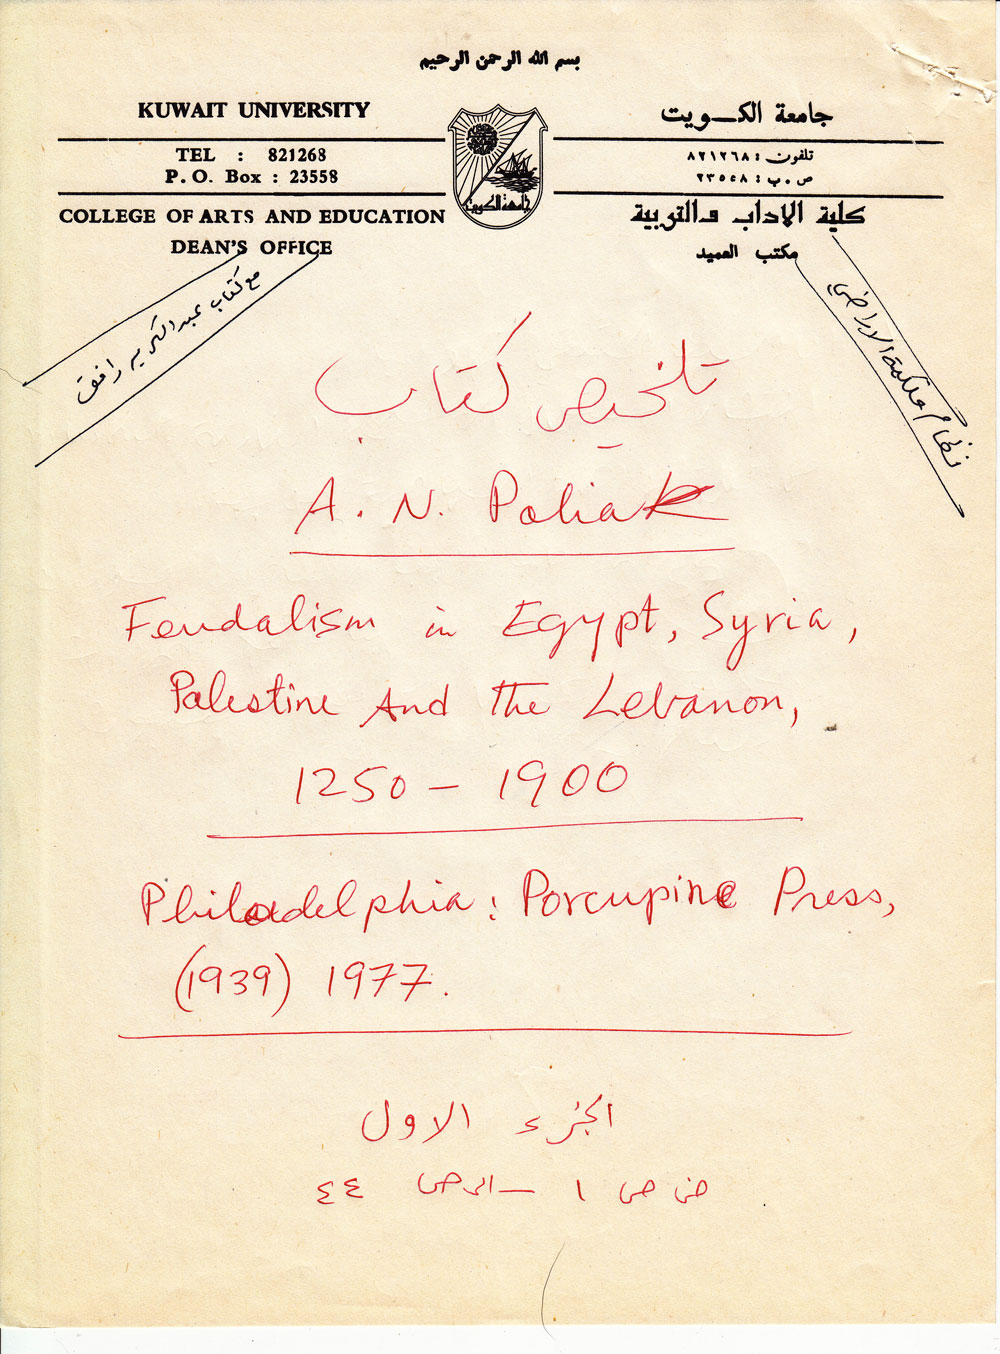 بسم الله الرحمن الرحيم
KUWAIT UNIVERSITY
جامعة الكـويت
TEL : 821268
تلفون : ٨٢١٢٦٨
P. O. Box : 23558
ص . ب : ٢٣٥٥٨
جامعة الكويت
COLLEGE OF ARTS AND EDUCATION
كلية الاداب والتربية
DEAN'S OFFICE
مكتب العميد
مع كتاب عبد الكريم رافق
نظام ملكية الاراضي
تلخيص كتاب
A. N. Poliak
Feudalism in Egypt, Syria,
Palestine And the Lebanon,
1250 – 1900
Philadelphia : Porcupine Press,
(1939) 1977.
الجزء الاول
من ص ١ – الى ص ٤٤